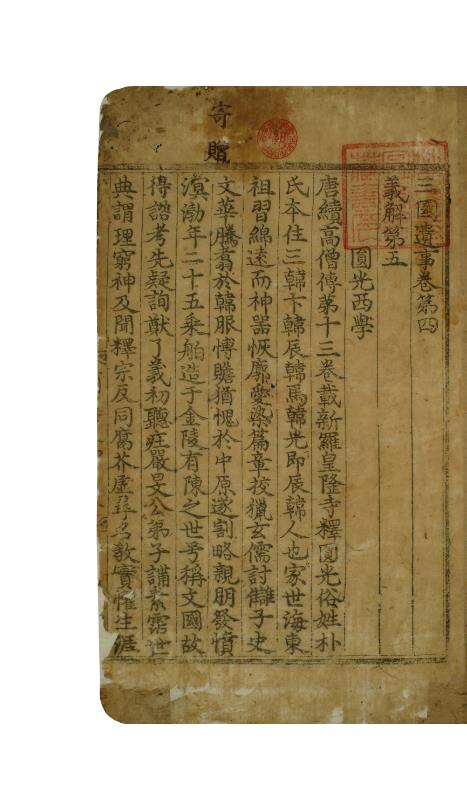 三國遺事卷第四
義解第五
圓光西學
唐續高僧傳第十三卷載新羅皇隆寺釋圓光俗姓朴
氏本住三韓卞韓辰韓馬韓光即辰韓人也家世海東
祖習綿遠而神器恢廓愛染篇章挍獵玄儒討讎子史
文華騰翥於韓服愽贍猶愧於中原遂割略親朋發憤
溟渤年二十五乗舶造于金陵有陳之世号稱文國故
得諮考先疑詢猷了義初聽莊嚴旻公弟子講素霑世
典謂理窮神及聞釋宗反同腐芥虛尋名教實懼生涯
寄贈